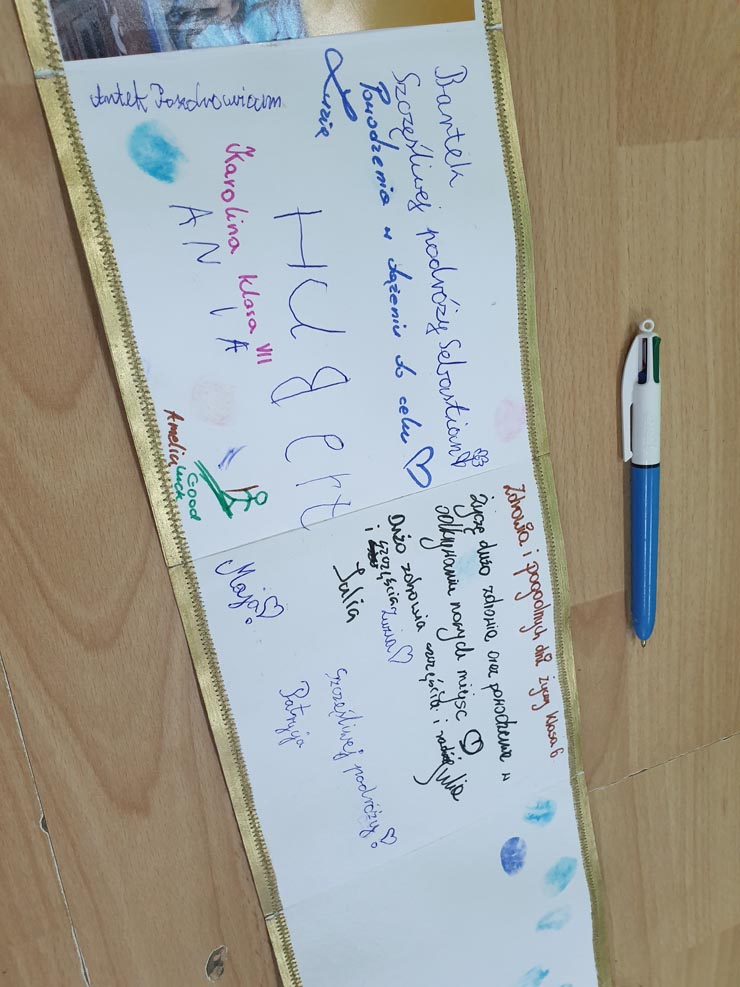 Bartek
Szczęśliwej podróży Sebastian
Powodzenia w dążeniu do celu
Zuzia
Antek Pozdrowicam
HUBert
Karolina klasa VII
ANIA
Good
luck
Amelia
Zdrowia i pogodnych dni życzy klasa 6
Życzę dużo zdrowia oraz powodzenia w
odkrywaniu nowych miejsc
Julia
Dużo zdrowia szczęścia i radości
i szczęścia Zuzia
Julia
Szczęśliwej podróży
Patrycja
Maja